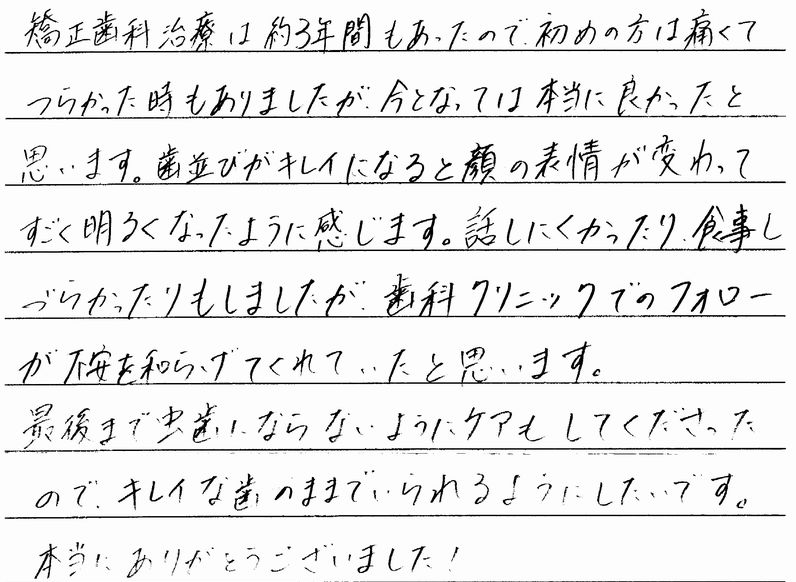 矯正歯科治療は約3年間もあったので、初めの方は痛くて
つらかった時もありましたが、今となっては本当に良かったと
思います。歯並びがキレイになると顔の表情が変わって
すごく明るくなったように感じます。話しにくかったり、食事し
づらかったりもしましたが、歯科クリニックでのフォロー
が不安を和らげてくれていたと思います。
最後まで虫歯にならないようにケアもしてくださった
ので、キレイな歯のままでいられるようにしたいです。
本当にありがとうございました!